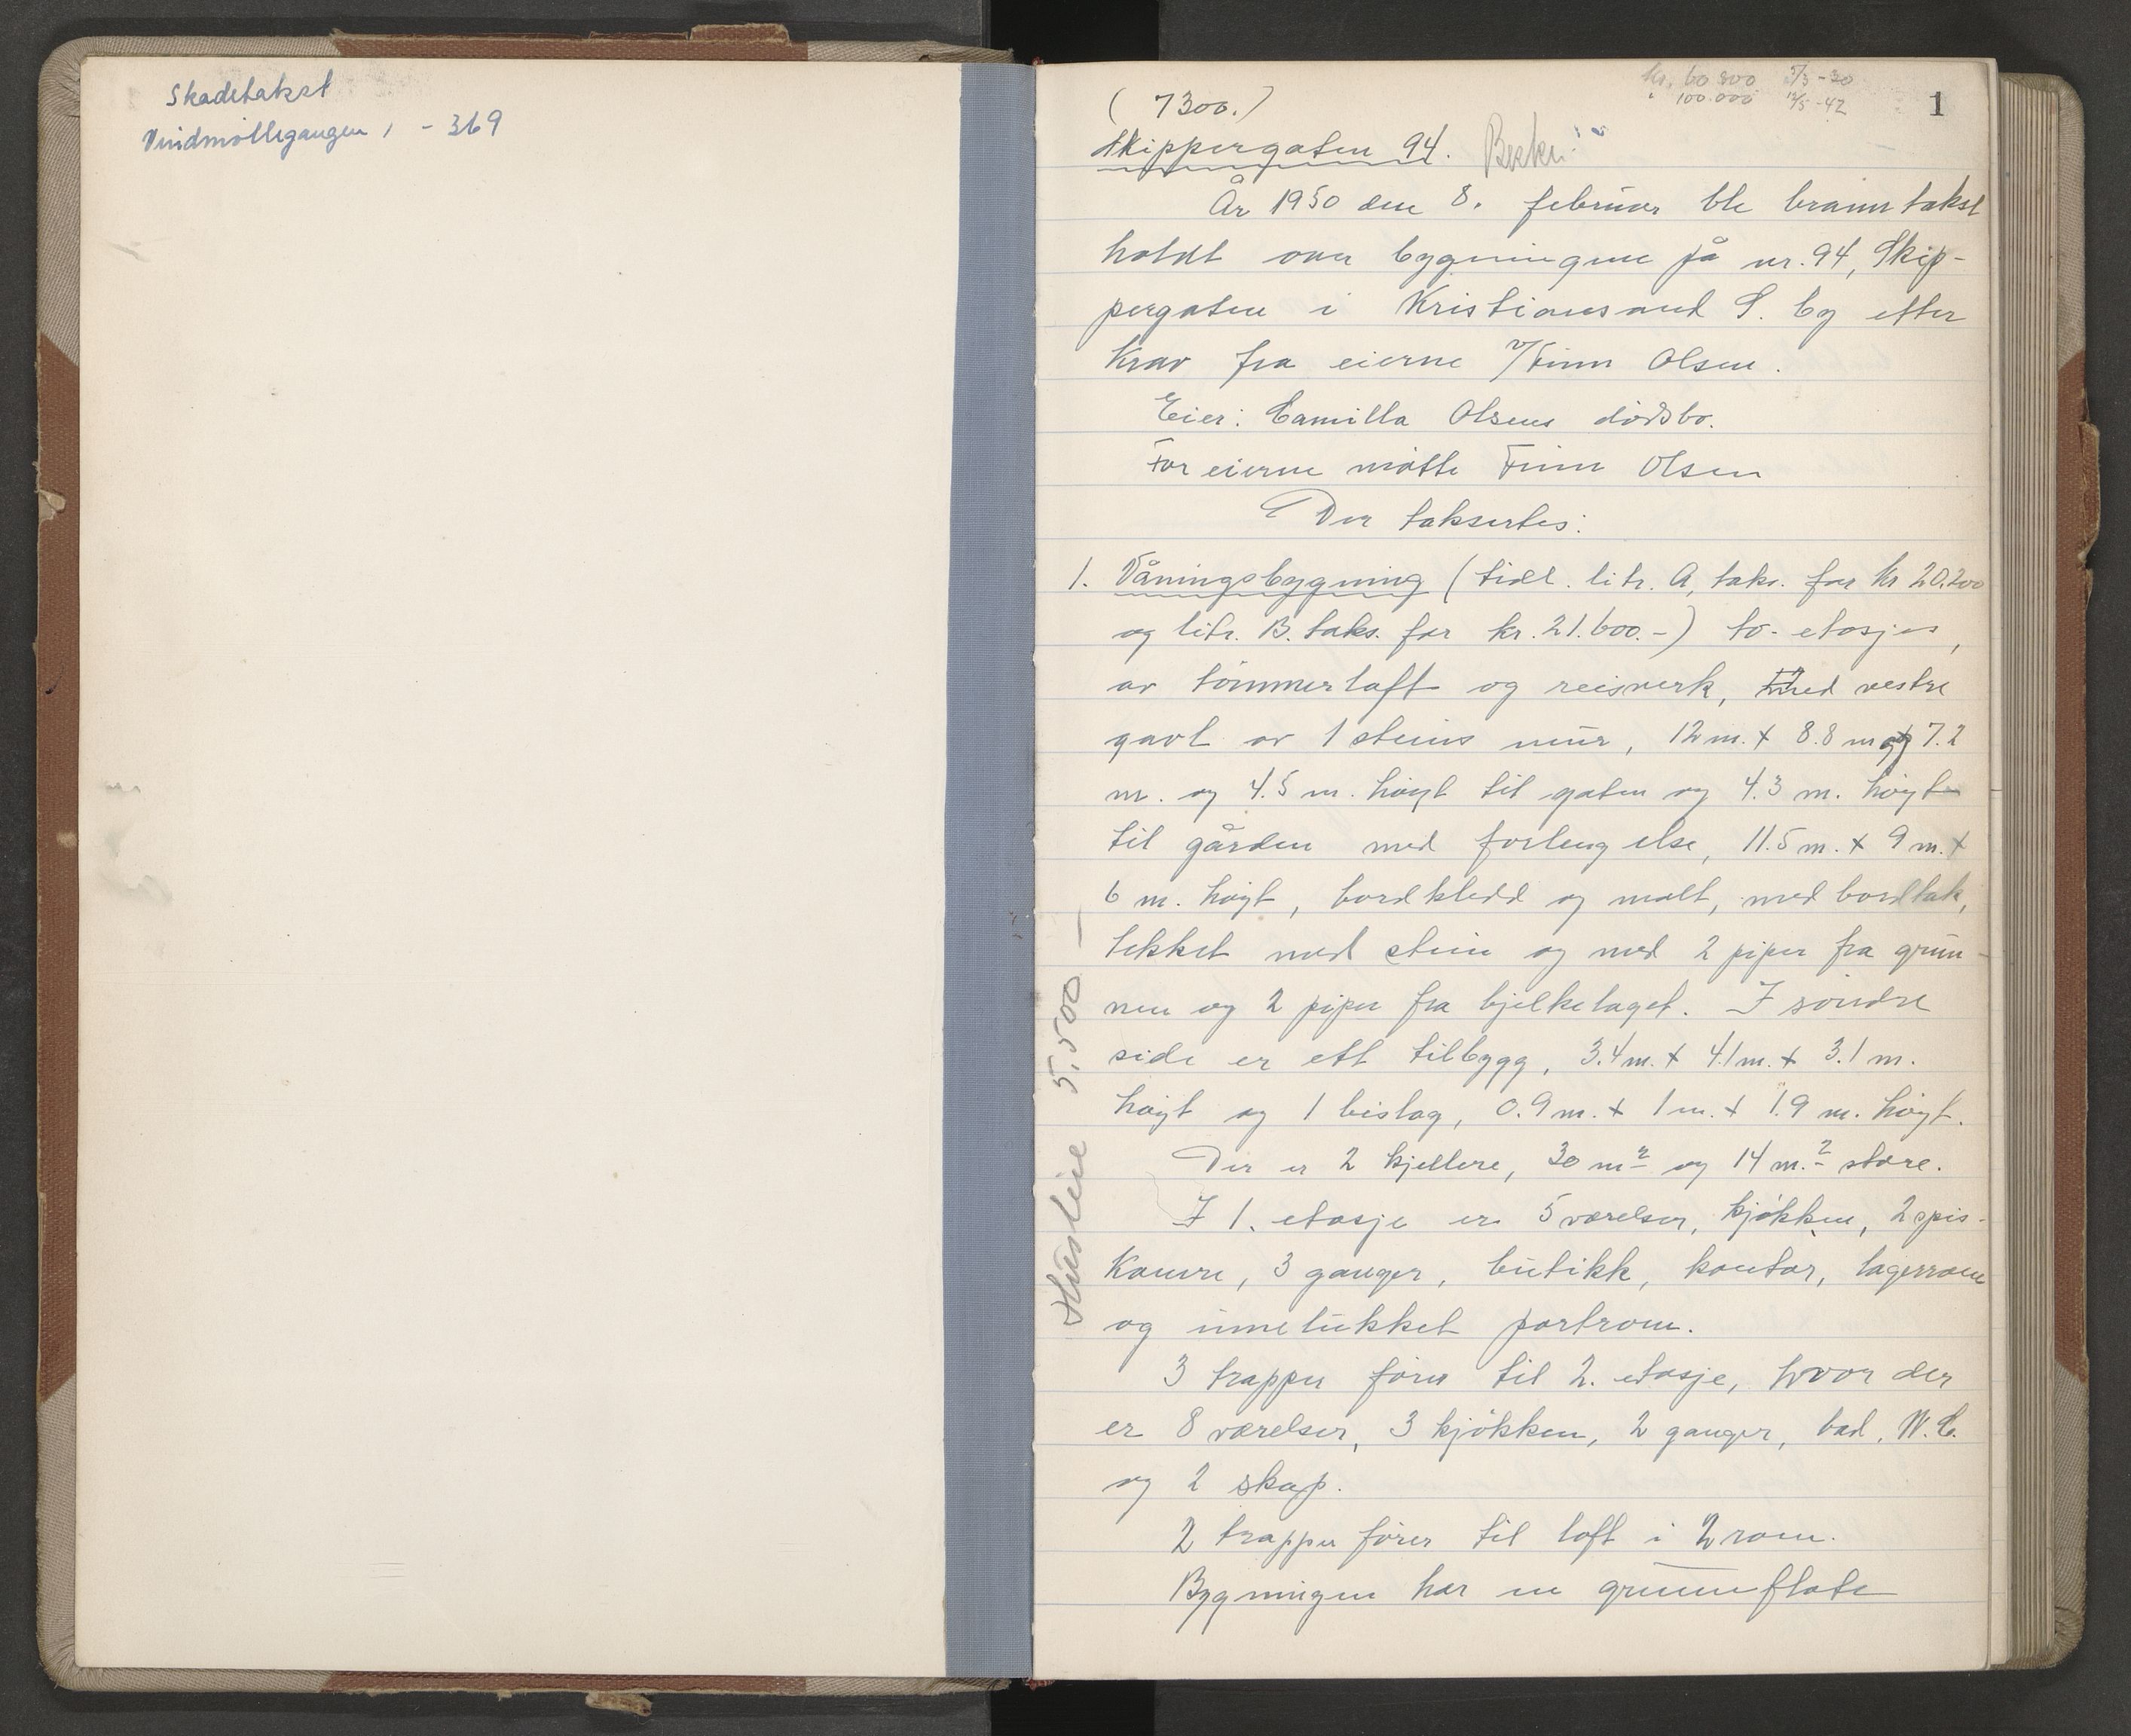 Skadetakst
Vindmøllegangen 1 - 369
kr. 60 800 3/3-30
" 100.000 12/5-42
1
(7300.)
Skippergaten 94.
År 1950 den 8. februar ble branntakst
holdt over bygningene på nr. 94, Skip-
pergaten i Kristiansand S. by etter
krav fra eierne v/Finn Olsen.
Eier: Camilla Olsens dødsbo.
For eierne møtte Finn Olsen
Der taksertes:
1. Våningsbygning (tidl. litr. A, taks. for kr 20.200
og litr. B. taks. for kr. 21.600.-) to-etasjes,
av tømmerloft og reisverk, med vestre
gavl av 1 steins mur, 12 m. x 8.8 m og 7.2
m. og 4.5 m. høyt til gaten og 4.3 m. høyt
til gården med forlengelse, 11.5 m. x 9 m. x
6 m. høyt, bordkledd og malt, med bordtak,
tekket med stein og med 2 piper fra grun-
nen og 2 piper fra bjelkelaget. I søndre
side er ett tilbygg, 3.4 m. x 4.1 m. x 3.1 m.
høyt og 1 bislag, 0.9 m. x 1 m. x 1.9 m. høyt.
Der er 2 kjellere, 30 m² og 14 m.² store.
I 1. etasje er 5 værelser, kjøkken, 2 spis-
kamre, 3 ganger, butikk, kontor, lagerrom
og innelukket portrom.
3 trapper fører til 2. etasje, hvor der
er 8 værelser, 3 kjøkken, 2 ganger, bad, W.C.
og 2 skap.
2 trapper fører til loft i 2 rom.
Bygningen har en grunnflate
Husleie 5,500 —